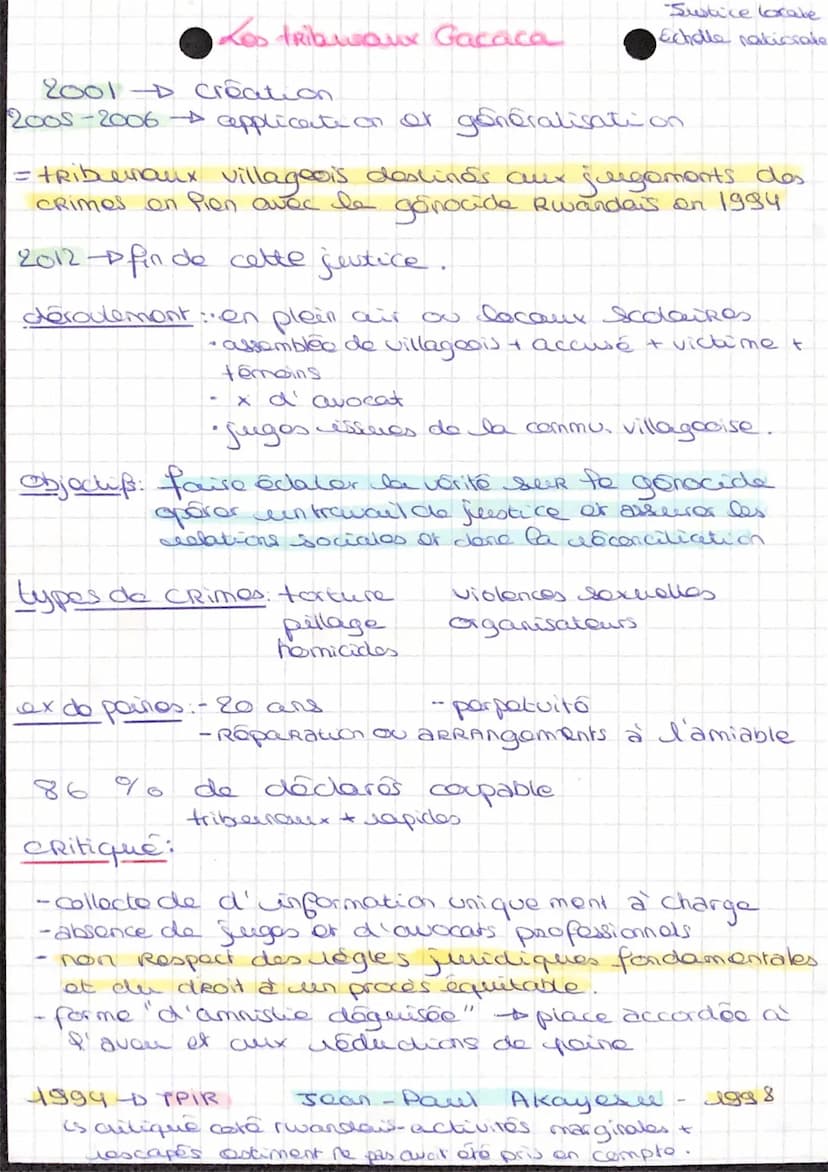 Justice locale
Echelle nationale
Les tribunaux Gacaca
2001 → création
2005-2006 → application et généralisation
= tribunaux villageois destinés aux jugements des
crimes en lien avec le génocide Rwandais en 1994
2012 → fin de cette justice.
déroulement : · en plein air ou locaux scolaires
· assemblée de villageois + accusé + victime +
témoins
- x d'avocat
· juges issues de la commu. villageoise.
Objectifs : faire éclater la vérité sur le génocide
opérer un travail de justice et assurer les
relations sociales et donc la réconciliation
types de crimes : torture violences sexuelles
pillage organisateurs
homicides
ex de peines : - 20 ans - perpétuité
- Réparation ou arrangements à l'amiable
86 % de déclarés coupable
tribunaux + rapides
Critique :
- collecte de d'information uniquement à charge
- absence de juges et d'avocats professionnels
- non respect des règles juridiques fondamentales
et du droit à un procès équitable.
- forme "d'amnistie déguisée" → place accordée à
l'aveu et aux réductions de peine
1994 → TPIR Jean-Paul Akayesu - 1998
↳ critiqué coté rwandais - activités marginales +
rescapés estiment ne pas avoir été pris en compte.